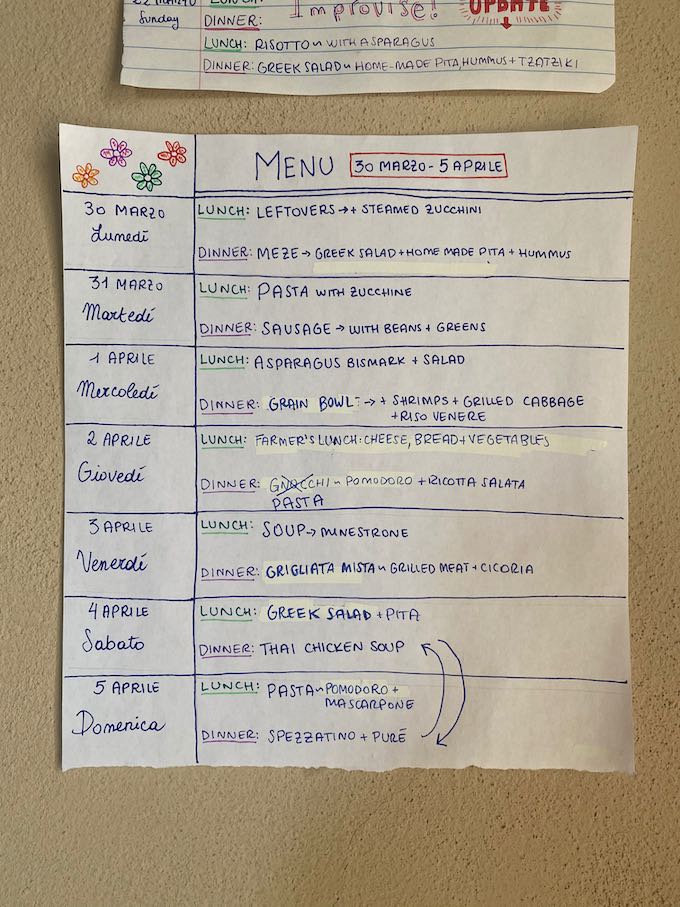 Sunday
DINNER:
Improvise!
UPDATE
LUNCH: RISOTTO ~ WITH ASPARAGUS
DINNER: GREEK SALAD ~ HOME-MADE PITA, HUMMUS + TZATZIKI
MENU 30 MARZO - 5 APRILE
30 MARZO
Lunedí
LUNCH: LEFTOVERS → + STEAMED ZUCCHINI
DINNER: MEZE → GREEK SALAD + HOME MADE PITA + HUMMUS
31 MARZO
Martedí
LUNCH: PASTA WITH ZUCCHINE
DINNER: SAUSAGE → WITH BEANS + GREENS
1 APRILE
Mercoledí
LUNCH: ASPARAGUS BISMARK + SALAD
DINNER: GRAIN BOWL: → + SHRIMPS + GRILLED CABBAGE
+ RISO VENERE
2 APRILE
Giovedí
LUNCH: FARMER'S LUNCH: CHEESE, BREAD + VEGETABLES
DINNER: GNOCCHI ~ POMODORO + RICOTTA SALATA
PASTA
3 APRILE
Venerdí
LUNCH: SOUP → MINESTRONE
DINNER: GRIGLIATA MISTA ~ GRILLED MEAT + CICORIA
4 APRILE
Sabato
LUNCH: GREEK SALAD + PITA
DINNER: THAI CHICKEN SOUP
5 APRILE
Domenica
LUNCH: PASTA ~ POMODORO +
MASCARPONE
DINNER: SPEZZATINO + PURÉ